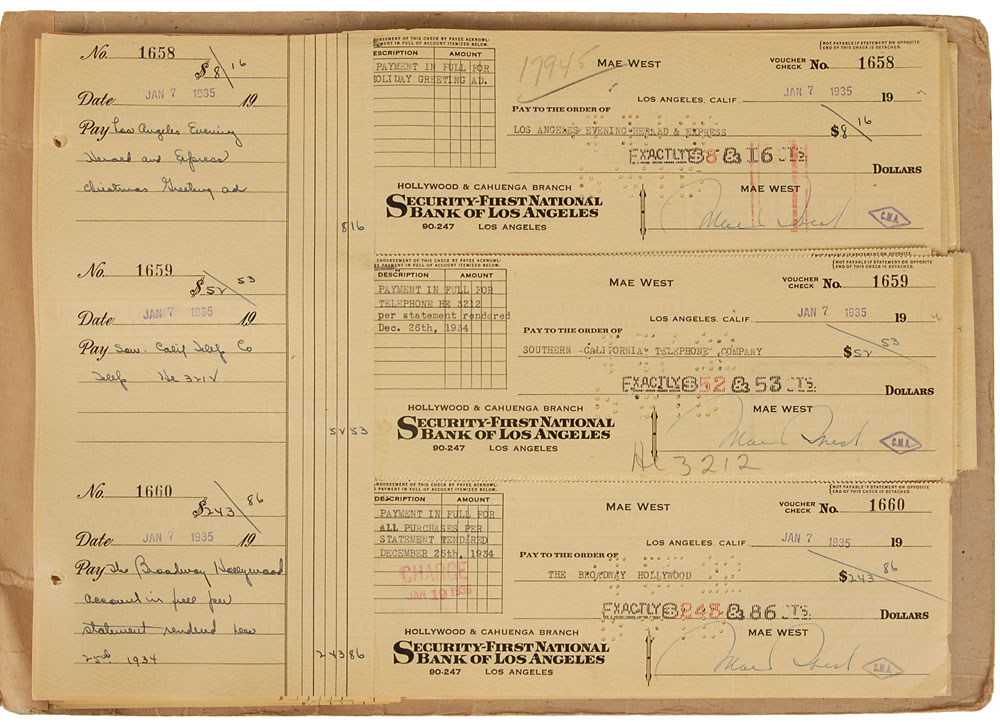 No. 1658
$8/16
Date JAN 7 1935 19
Pay Los Angeles Evening
Herald and Express
Christmas Greeting ad
8 16
No. 1659
$52/53
Date JAN 7 1935 19
Pay Sou. Calif Telep Co
Telep He 3212
52 53
No. 1660
$243/86
Date JAN 7 1935 19
Pay The Broadway Hollywood
account in full per
statement rendered Dec
25th 1934
243 86
ENDORSEMENT OF THIS CHECK BY PAYEE ACKNOWL-
PAYMENT IN FULL OF ACCOUNT ITEMIZED BELOW.
DESCRIPTION AMOUNT
PAYMENT IN FULL FOR
HOLIDAY GREETING AD.
17945
MAE WEST
NOT PAYABLE IF STATEMENT ON OPPOSITE
END OF THIS CHECK IS DETACHED
VOUCHER CHECK No. 1658
LOS ANGELES, CALIF. JAN 7 1935 19
PAY TO THE ORDER OF
LOS ANGELES EVENING HERALD & EXPRESS $8/16
EXACTLY $8 & 16 CTS
DOLLARS
HOLLYWOOD & CAHUENGA BRANCH
SECURITY-FIRST NATIONAL
BANK OF LOS ANGELES
90-247 LOS ANGELES
MAE WEST
Mae West
C.M.A.
ENDORSEMENT OF THIS CHECK BY PAYEE ACKNOWL-
PAYMENT IN FULL OF ACCOUNT ITEMIZED BELOW.
DESCRIPTION AMOUNT
PAYMENT IN FULL FOR
TELEPHONE HE 3212
per statement rendered
Dec. 26th, 1934
MAE WEST
NOT PAYABLE IF STATEMENT ON OPPOSITE
END OF THIS CHECK IS DETACHED
VOUCHER CHECK No. 1659
LOS ANGELES, CALIF. JAN 7 1935 19
PAY TO THE ORDER OF
SOUTHERN CALIFORNIA TELEPHONE COMPANY $52/53
EXACTLY $52 & 53 CTS
DOLLARS
HOLLYWOOD & CAHUENGA BRANCH
SECURITY-FIRST NATIONAL
BANK OF LOS ANGELES
90-247 LOS ANGELES
MAE WEST
Mae West
C.M.A.
He 3212
ENDORSEMENT OF THIS CHECK BY PAYEE ACKNOWL-
PAYMENT IN FULL OF ACCOUNT ITEMIZED BELOW.
DESCRIPTION AMOUNT
PAYMENT IN FULL FOR
all PURCHASES PER
STATEMENT TENDIRED
DECEMBER 25th, 1934
CHARGE
JAN 10 1935
MAE WEST
NOT PAYABLE IF STATEMENT ON OPPOSITE
END OF THIS CHECK IS DETACHED
VOUCHER CHECK No. 1660
LOS ANGELES, CALIF. JAN 7 1935 19
PAY TO THE ORDER OF
THE BROADWAY HOLLYWOOD $243/86
EXACTLY $243 & 86 CTS
DOLLARS
HOLLYWOOD & CAHUENGA BRANCH
SECURITY-FIRST NATIONAL
BANK OF LOS ANGELES
90-247 LOS ANGELES
MAE WEST
Mae West
C.M.A.